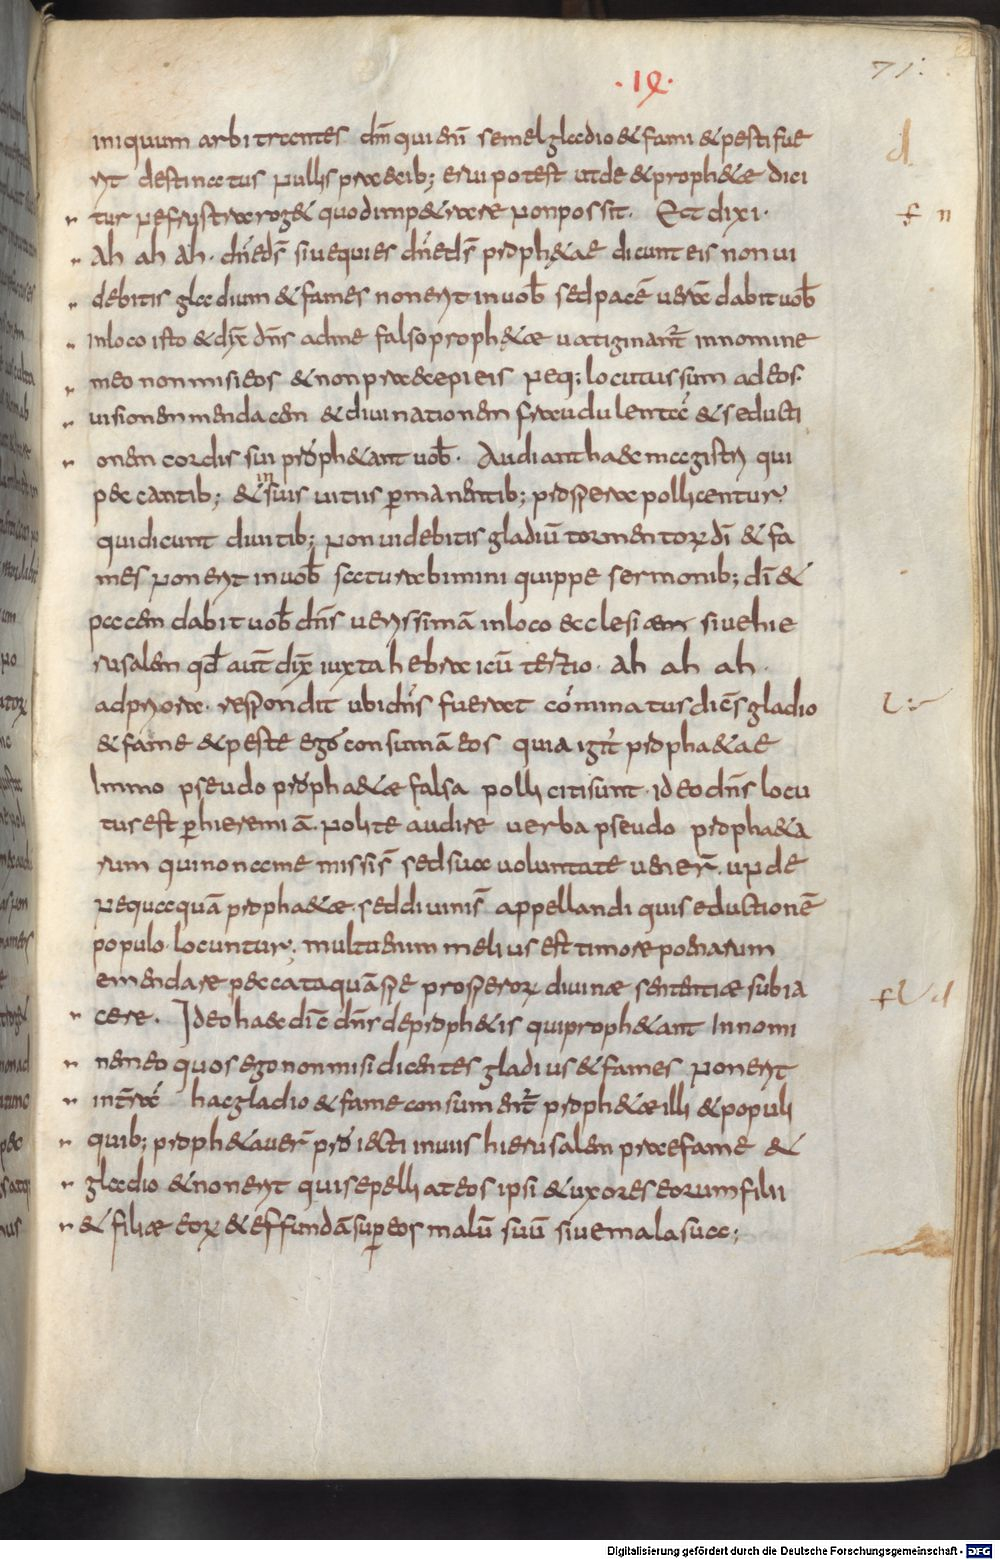 ·IX·
71.
iniquum arbitrantes dm̄ qui enī semel gladio & fami & pesti fue
rit destinatus nullis praecib; erui potest unde & proph&ae dici
tur ne frustra rog& quod imp&rare non possit. Et dixi.
Ah ah Ah. dn̄e ds̄ siue quies dn̄e ds̄ proph&ae dicunt eis non ui
debitis gladium & fames non erit in uob̄ sed pacē uerā dabit uob̄
In loco isto & dix̄ dn̄s ad me falso proph&ae uatiginant̄ in nomine
meo non misi eos & non praecepi eis neq; locutus sum ad eos.
uisionem mendacem & diuinationem fraudulentā & seducti
onem cordis sui proph&ant uob̄. Audiant haec magistri qui
peccantib; & in suis uitiis p̄manentib; prospera pollicentur
qui dicunt diuitib; non uidebitis gladiū tormentorꝝ dī & fa
mes non erit in uob̄ saturabimini quippe sermonib; dī &
pacem dabit uob̄ dn̄s uerissimā in loco ecclesiae siue hie
rusalem qd̄ aut̄ dix̄ iuxta hebraicū tertio. Ah ah ah.
ad priora. respondit ubi dn̄s fuerat cōminatus dicēs gladio
& fame & peste ego consumā eos quia igit̄ propha&ae
Immo pseudo propha&ae falsa polliciti sunt. ideo dn̄s locu
tus est p̄ hieremiā. nolite audire uerba pseudo propha&a
rum qui non a me missi s̄ sed sua uoluntate uener̄. unde
nequaquā propha&ae. sed diuini s̄ appellandi qui seductionē
populo locuntur; multu enim melius est timore poenarum
emendare peccata quā spe prosperorꝝ diuinae sententiae subia
cere. Ideo haec dic̄ dn̄s de proph&is qui proph&ant In nomi
ne meo quos ego non misi dicentes gladius & fames non erit
in t̄ra hac gladio & fame consument̄ proph&ae illi & populi
quib; proph&auer̄ proiecti in uiis hierusalem prae fame &
gladio & non erit qui sepelliat eos ipsi & uxores eorum filii
& filiae eorꝝ & effundā sup̄ eos malū suū siue mala sua;
Digitalisierung gefördert durch die Deutsche Forschungsgemeinschaft - DFG